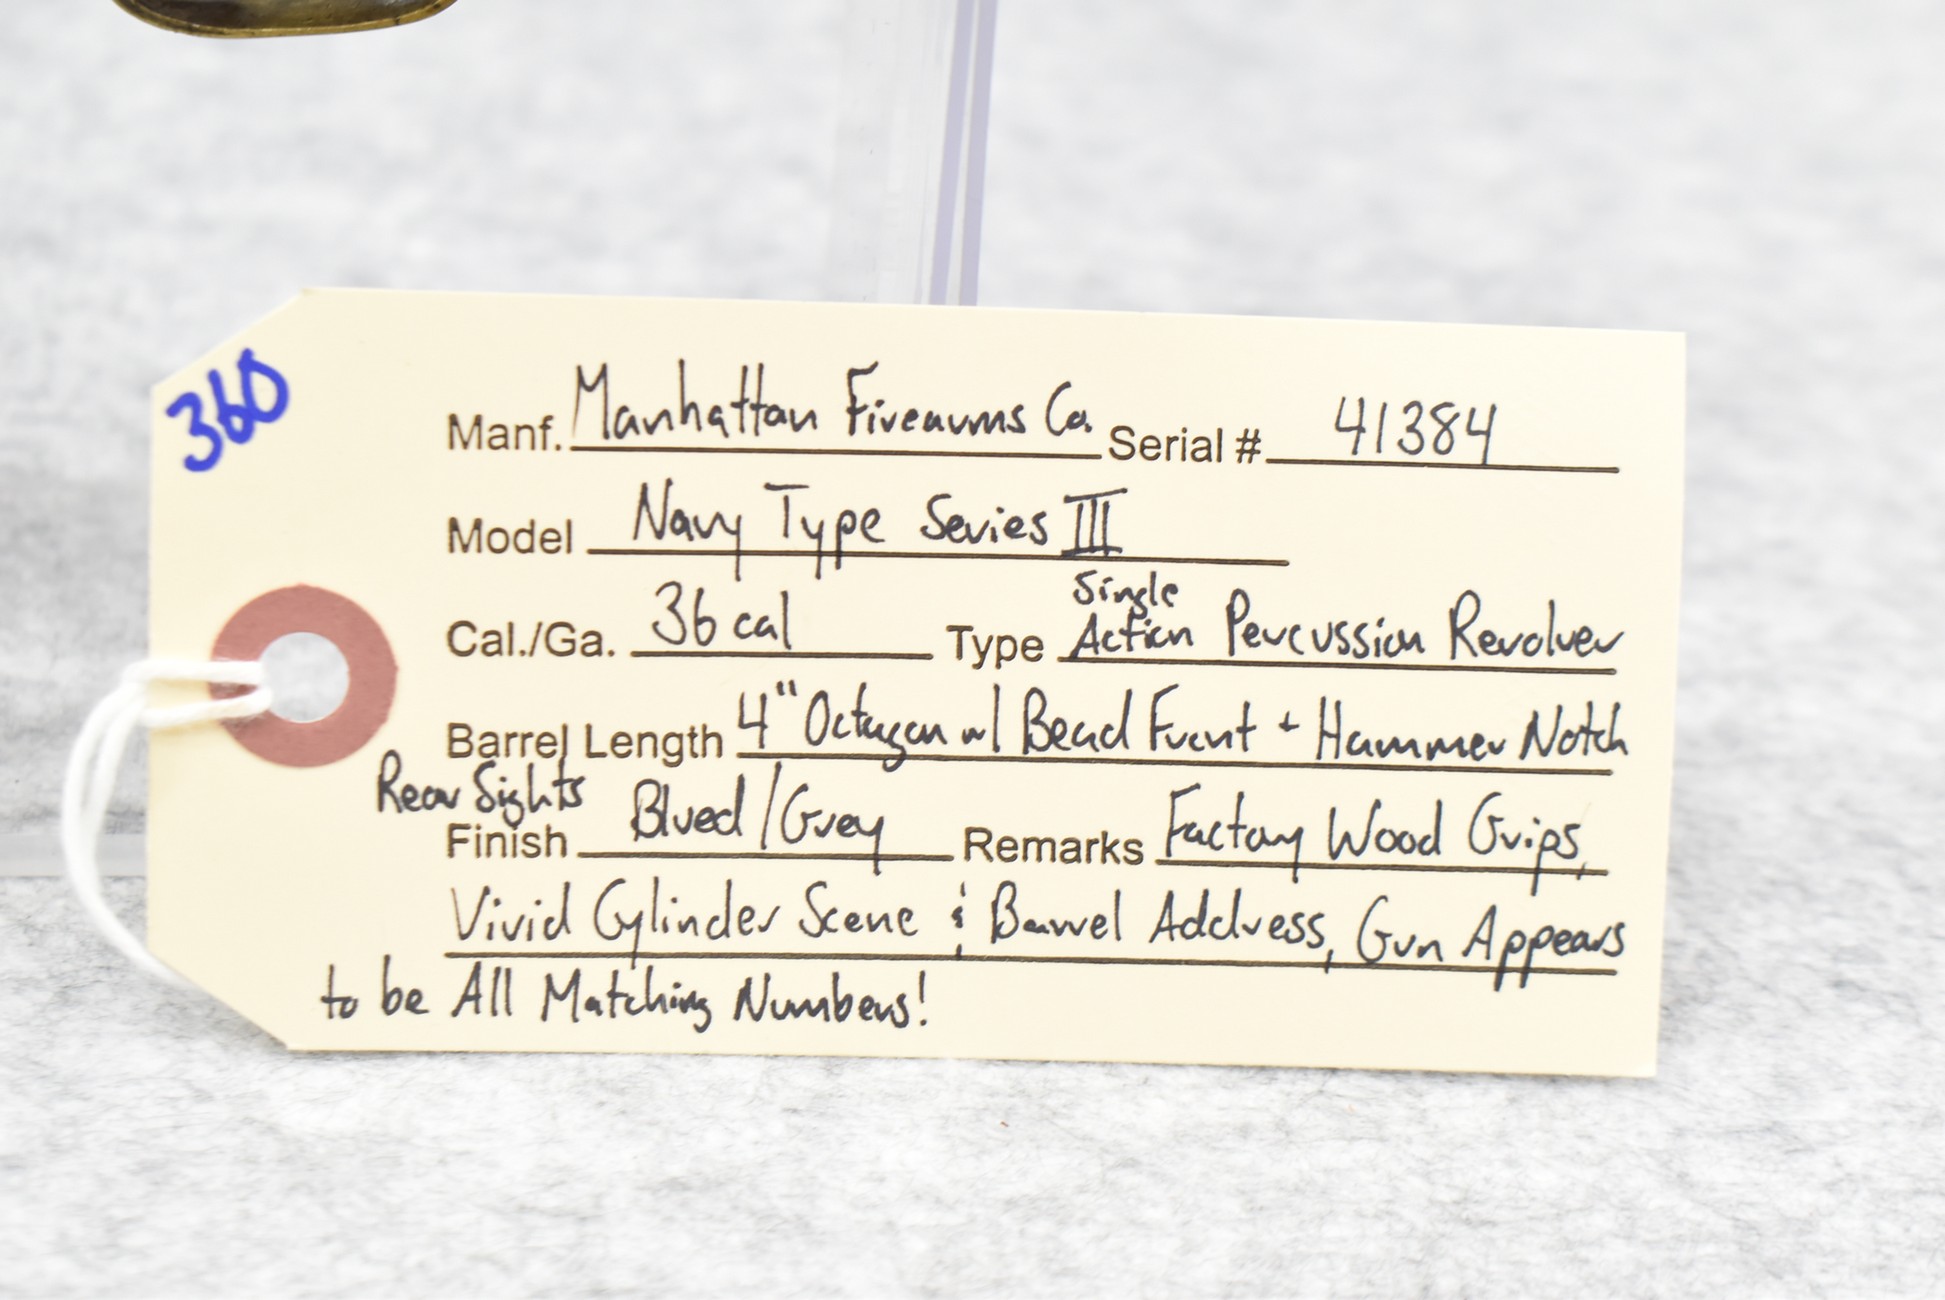 360
Manf. Manhattan Firearms Co. Serial # 41384
Model Navy Type Series III
Cal./Ga. 36 cal Type Single Action Percussion Revolver
Barrel Length 4" Octagon w/ Bead Front + Hammer Notch
Rear Sights
Finish Blued/Grey Remarks Factory Wood Grips,
Vivid Cylinder Scene & Barrel Address, Gun Appears
to be All Matching Numbers!